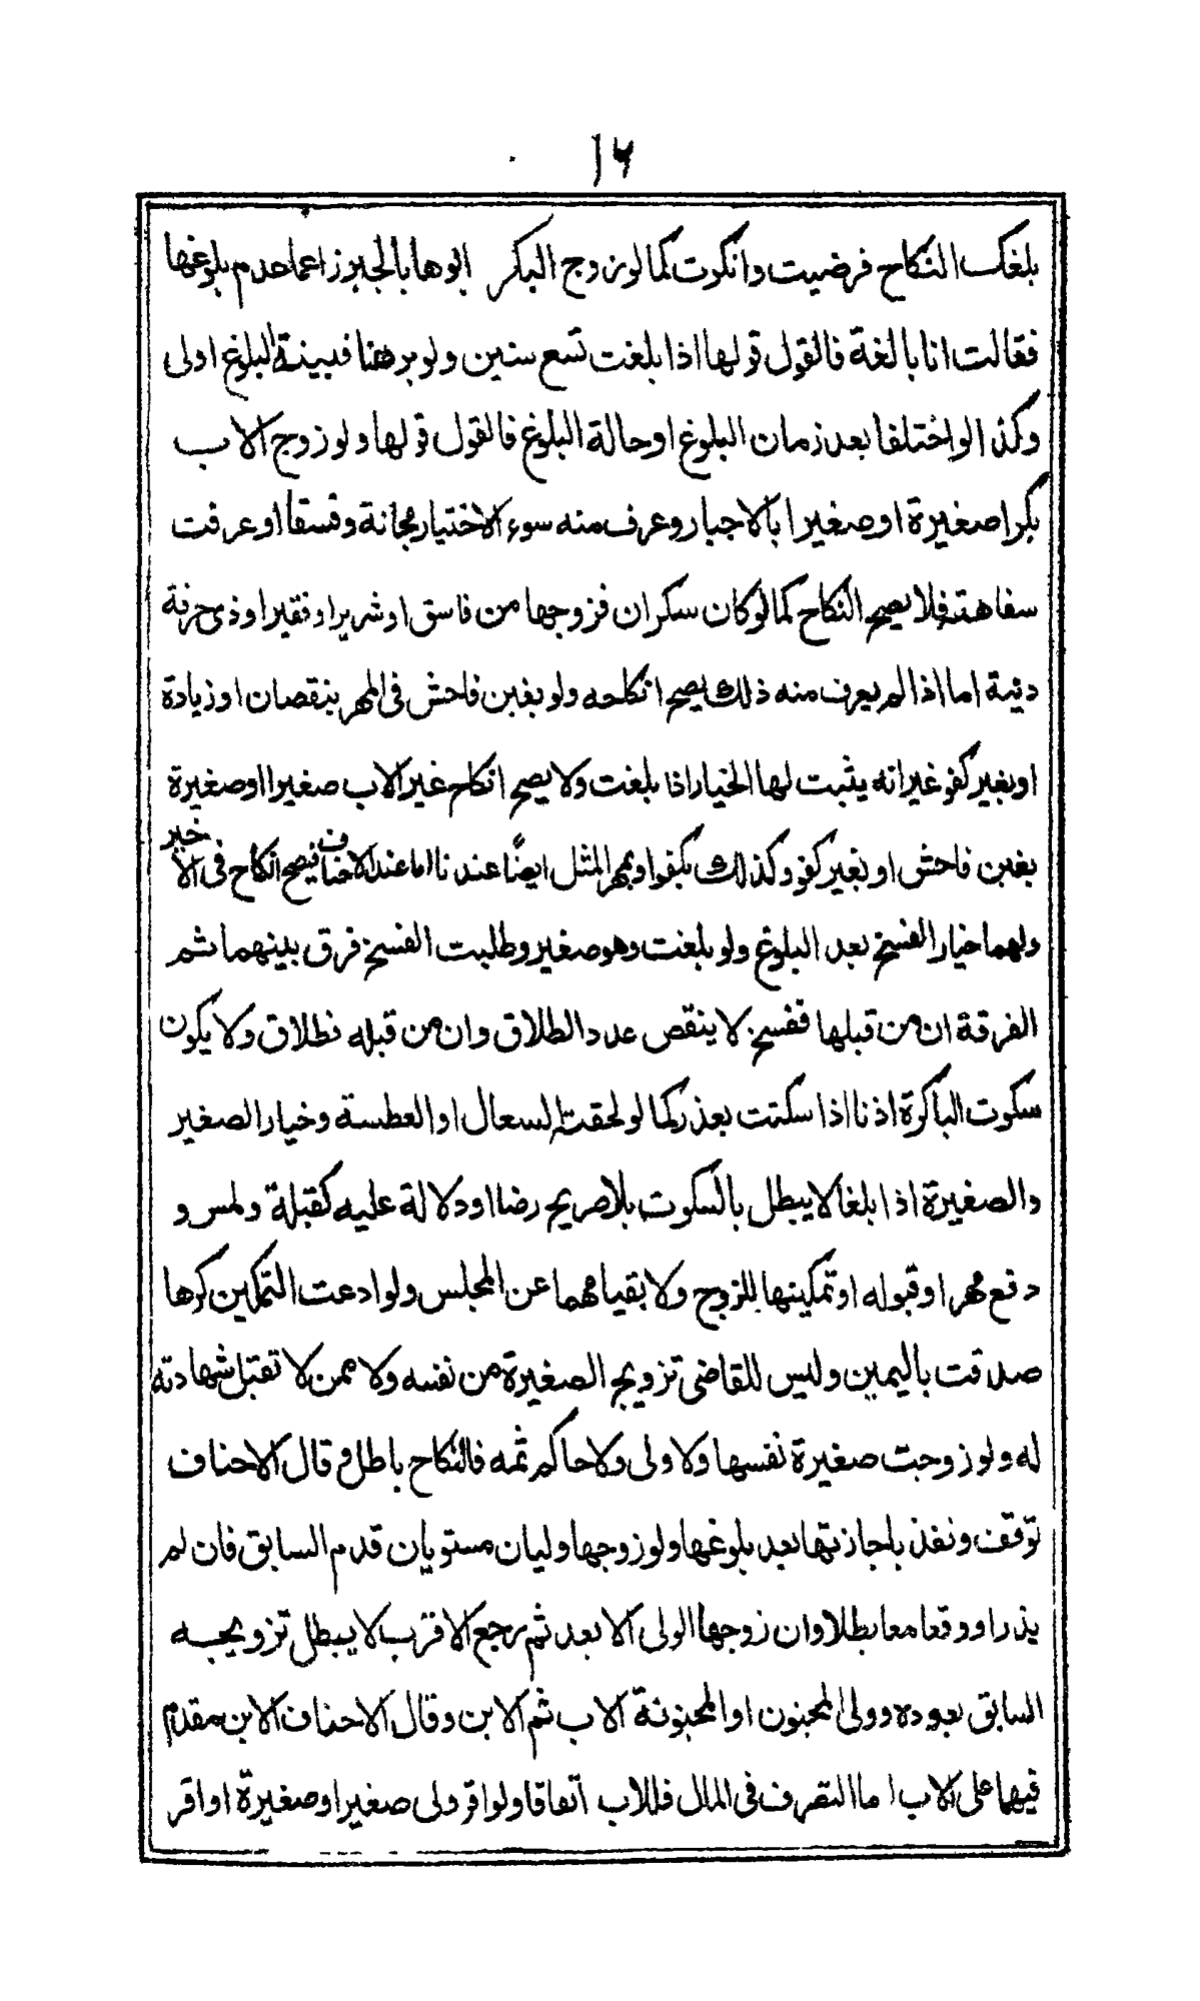 ١٦
بلغك النكاح فرضيت وانكرت كما لو زوج البكر ابوها بالجبر زاعما عدم بلوغها
فقالت انا بالغة فالقول قولها اذا بلغت تسع سنين ولو برهنا فبينة البلوغ اولى
وكذا لو اختلفا بعد زمان البلوغ او حالة البلوغ فالقول قولها ولو زوج الاب
بكرا صغيرة او صغيرا بالاجبار وعرف منه سوء الاختيار مجانة وفسقا او عرفت
سفاهته فلا يصح النكاح كما لو كان سكران فزوجها من فاسق او شرير او فقير او ذى حرفة
دنية اما اذا لم يعرف منه ذلك يصح انكاحه ولو بغبن فاحش فى المهر بنقصان او زيادة
او بغير كفو غير انه يثبت لها الخيار اذا بلغت ولا يصح انكاح غير الاب صغيرا او صغيرة
بغبن فاحش او بغير كفو وكذلك بكفوا وبمهر المثل ايضًا عندنا اما عند الاحناف فيصح انكاح فى الاخير
ولهما خيار الفسخ بعد البلوغ ولو بلغت وهو صغير وطلبت الفسخ فرق بينهما ثم
الفرقة ان من قبلها ففسخ لا ينقص عدد الطلاق وان من قبله فطلاق ولا يكون
سكوت الباكرة اذنا اذا سكتت بعذر كما لو لحقتها السعال او العطسة وخيار الصغير
والصغيرة اذا بلغا لا يبطل بالسكوت بلا صريح رضا او دلالة عليه كقبلة ولمس و
دفع مهر او قبوله او تمكينها للزوج ولا بقيامهما عن المجلس ولو ادعت التمكين كرها
صدقت باليمين وليس للقاضى تزويج الصغيرة من نفسه ولا ممن لا تقبل شهادته
له ولو زوجت صغيرة نفسها ولا ولى ولا حاكم ثمه فالنكاح باطل وقال الاحناف
توقف ونفذ باجازتها بعد بلوغها ولو زوجها وليان مستويان قدم السابق فان لم
يدر او وقعا معا بطلا وان زوجها الولى الابعد ثم رجع الاقرب لا يبطل تزويجه
السابق بعوده وولى المجنون او المجنونة الاب ثم الابن وقال الاحناف الابن مقدم
فيها على الاب اما التصرف فى المال فللاب اتفاقا ولو اقر ولى صغير او صغيرة او اقر